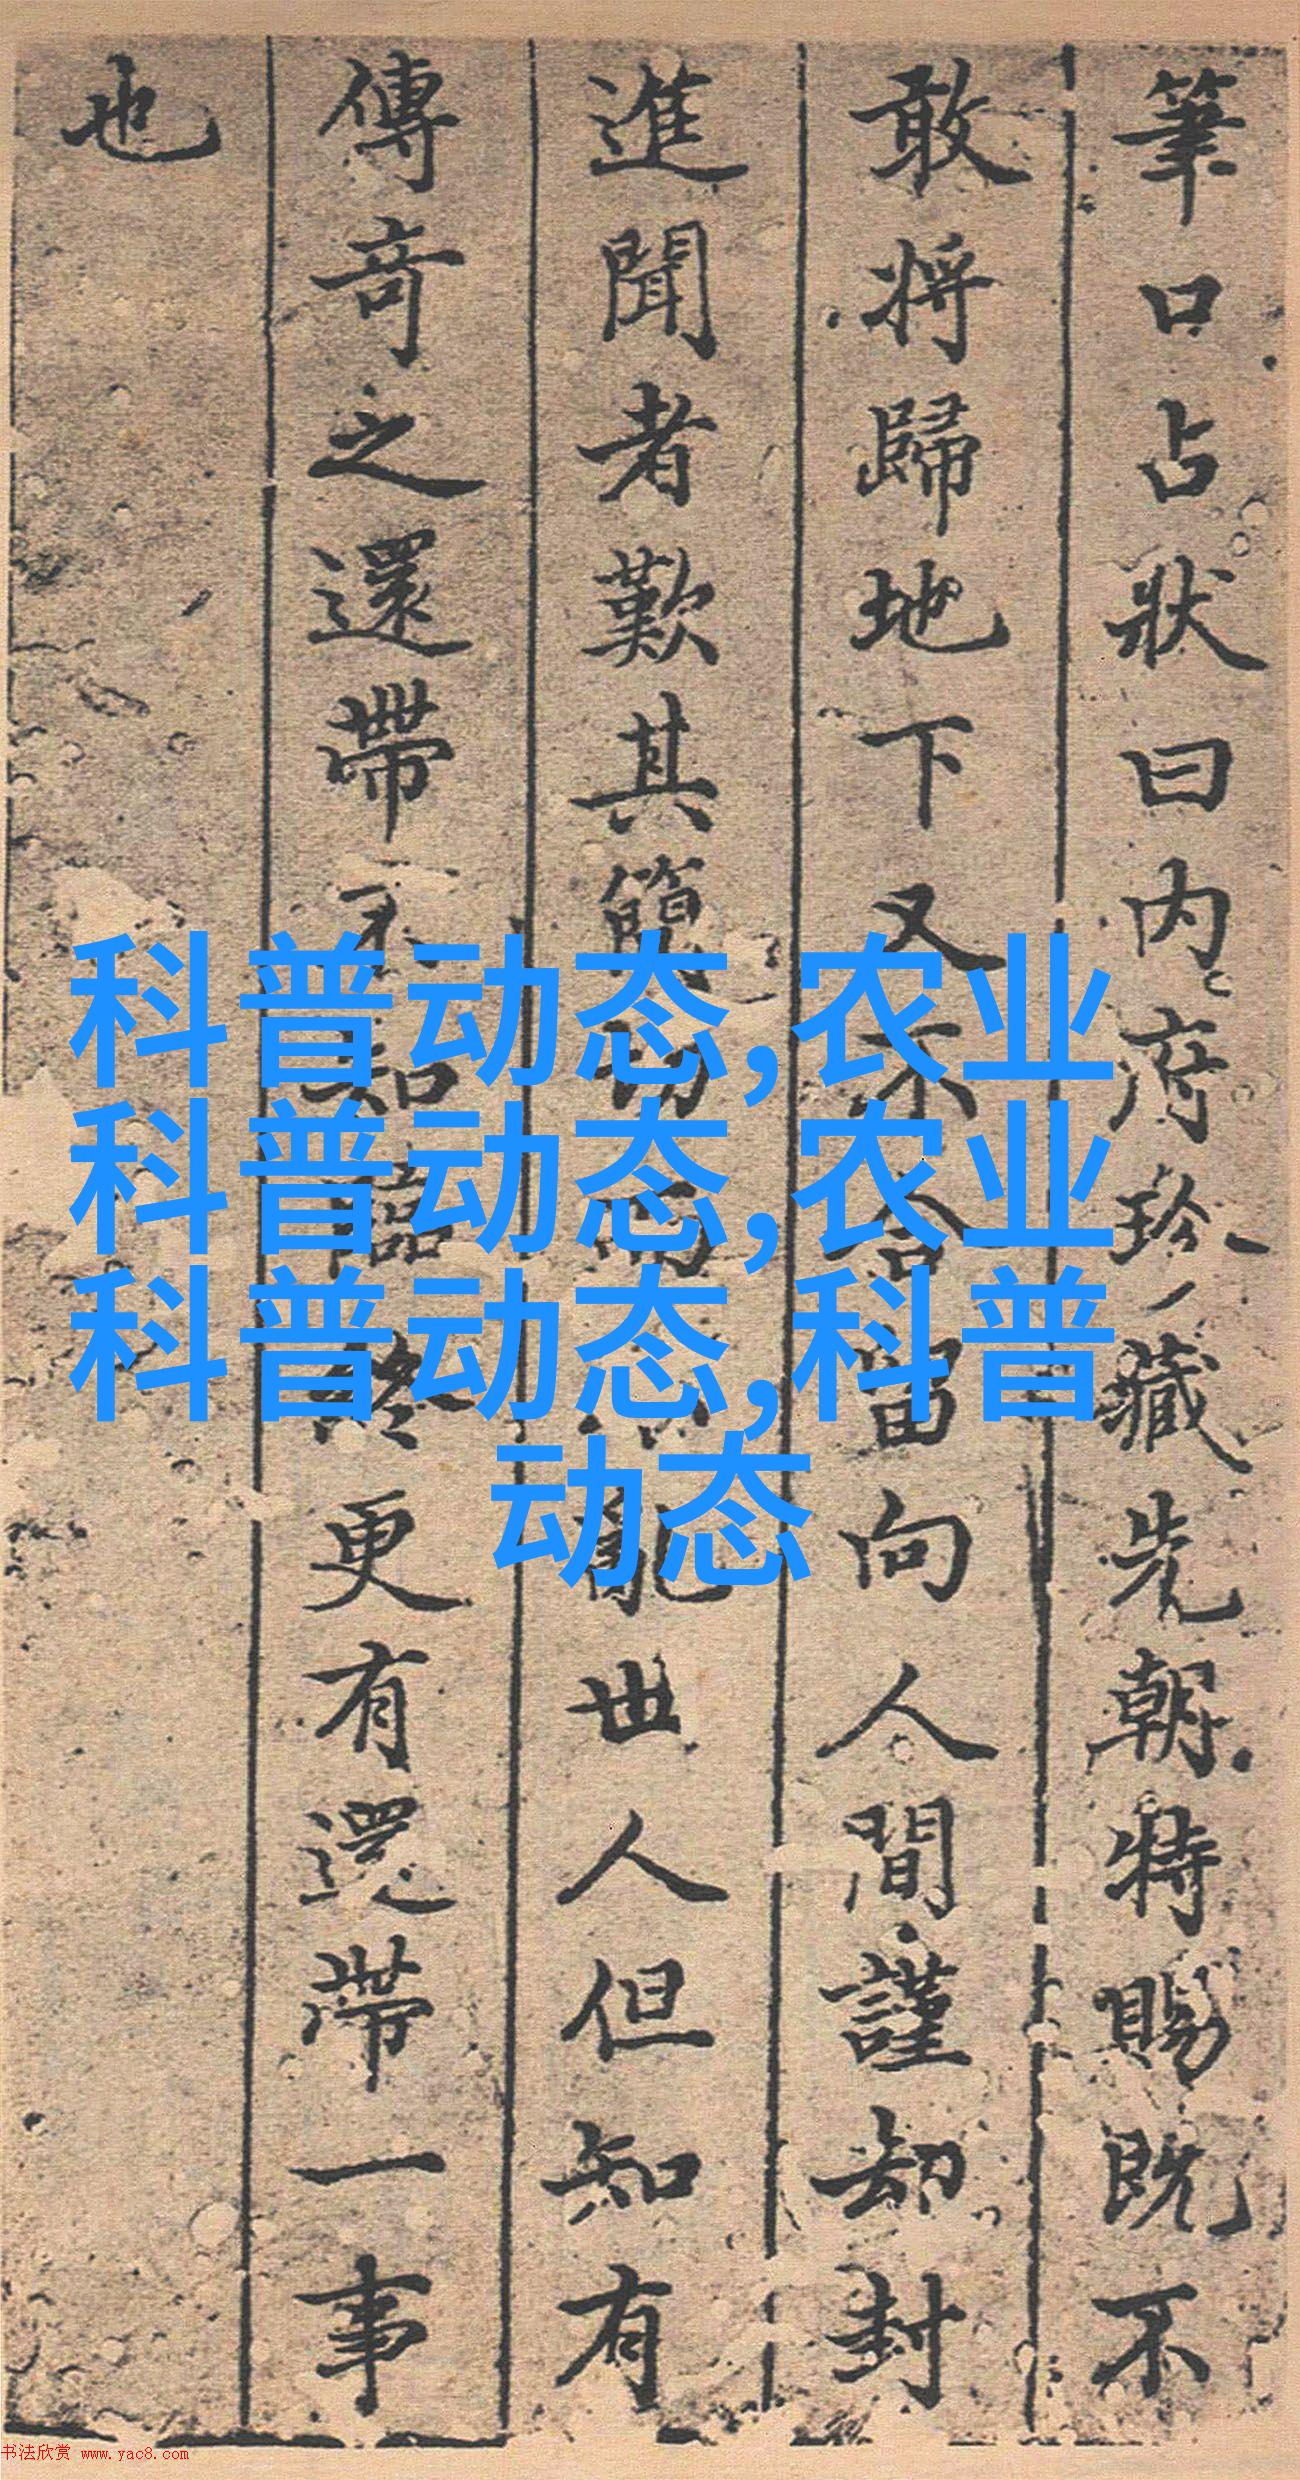 筆口占狀曰內府珍藏先朝特賜既不
敢將歸地下又不合留向人間謹却封
進聞者歎其簡切而不亂世人但知有
傳奇之還帶不知臨終更有還帶一事
也
科普动态,农业
科普动态,农业
科普动态,科普
动态
书法欣赏 www.yac8.com